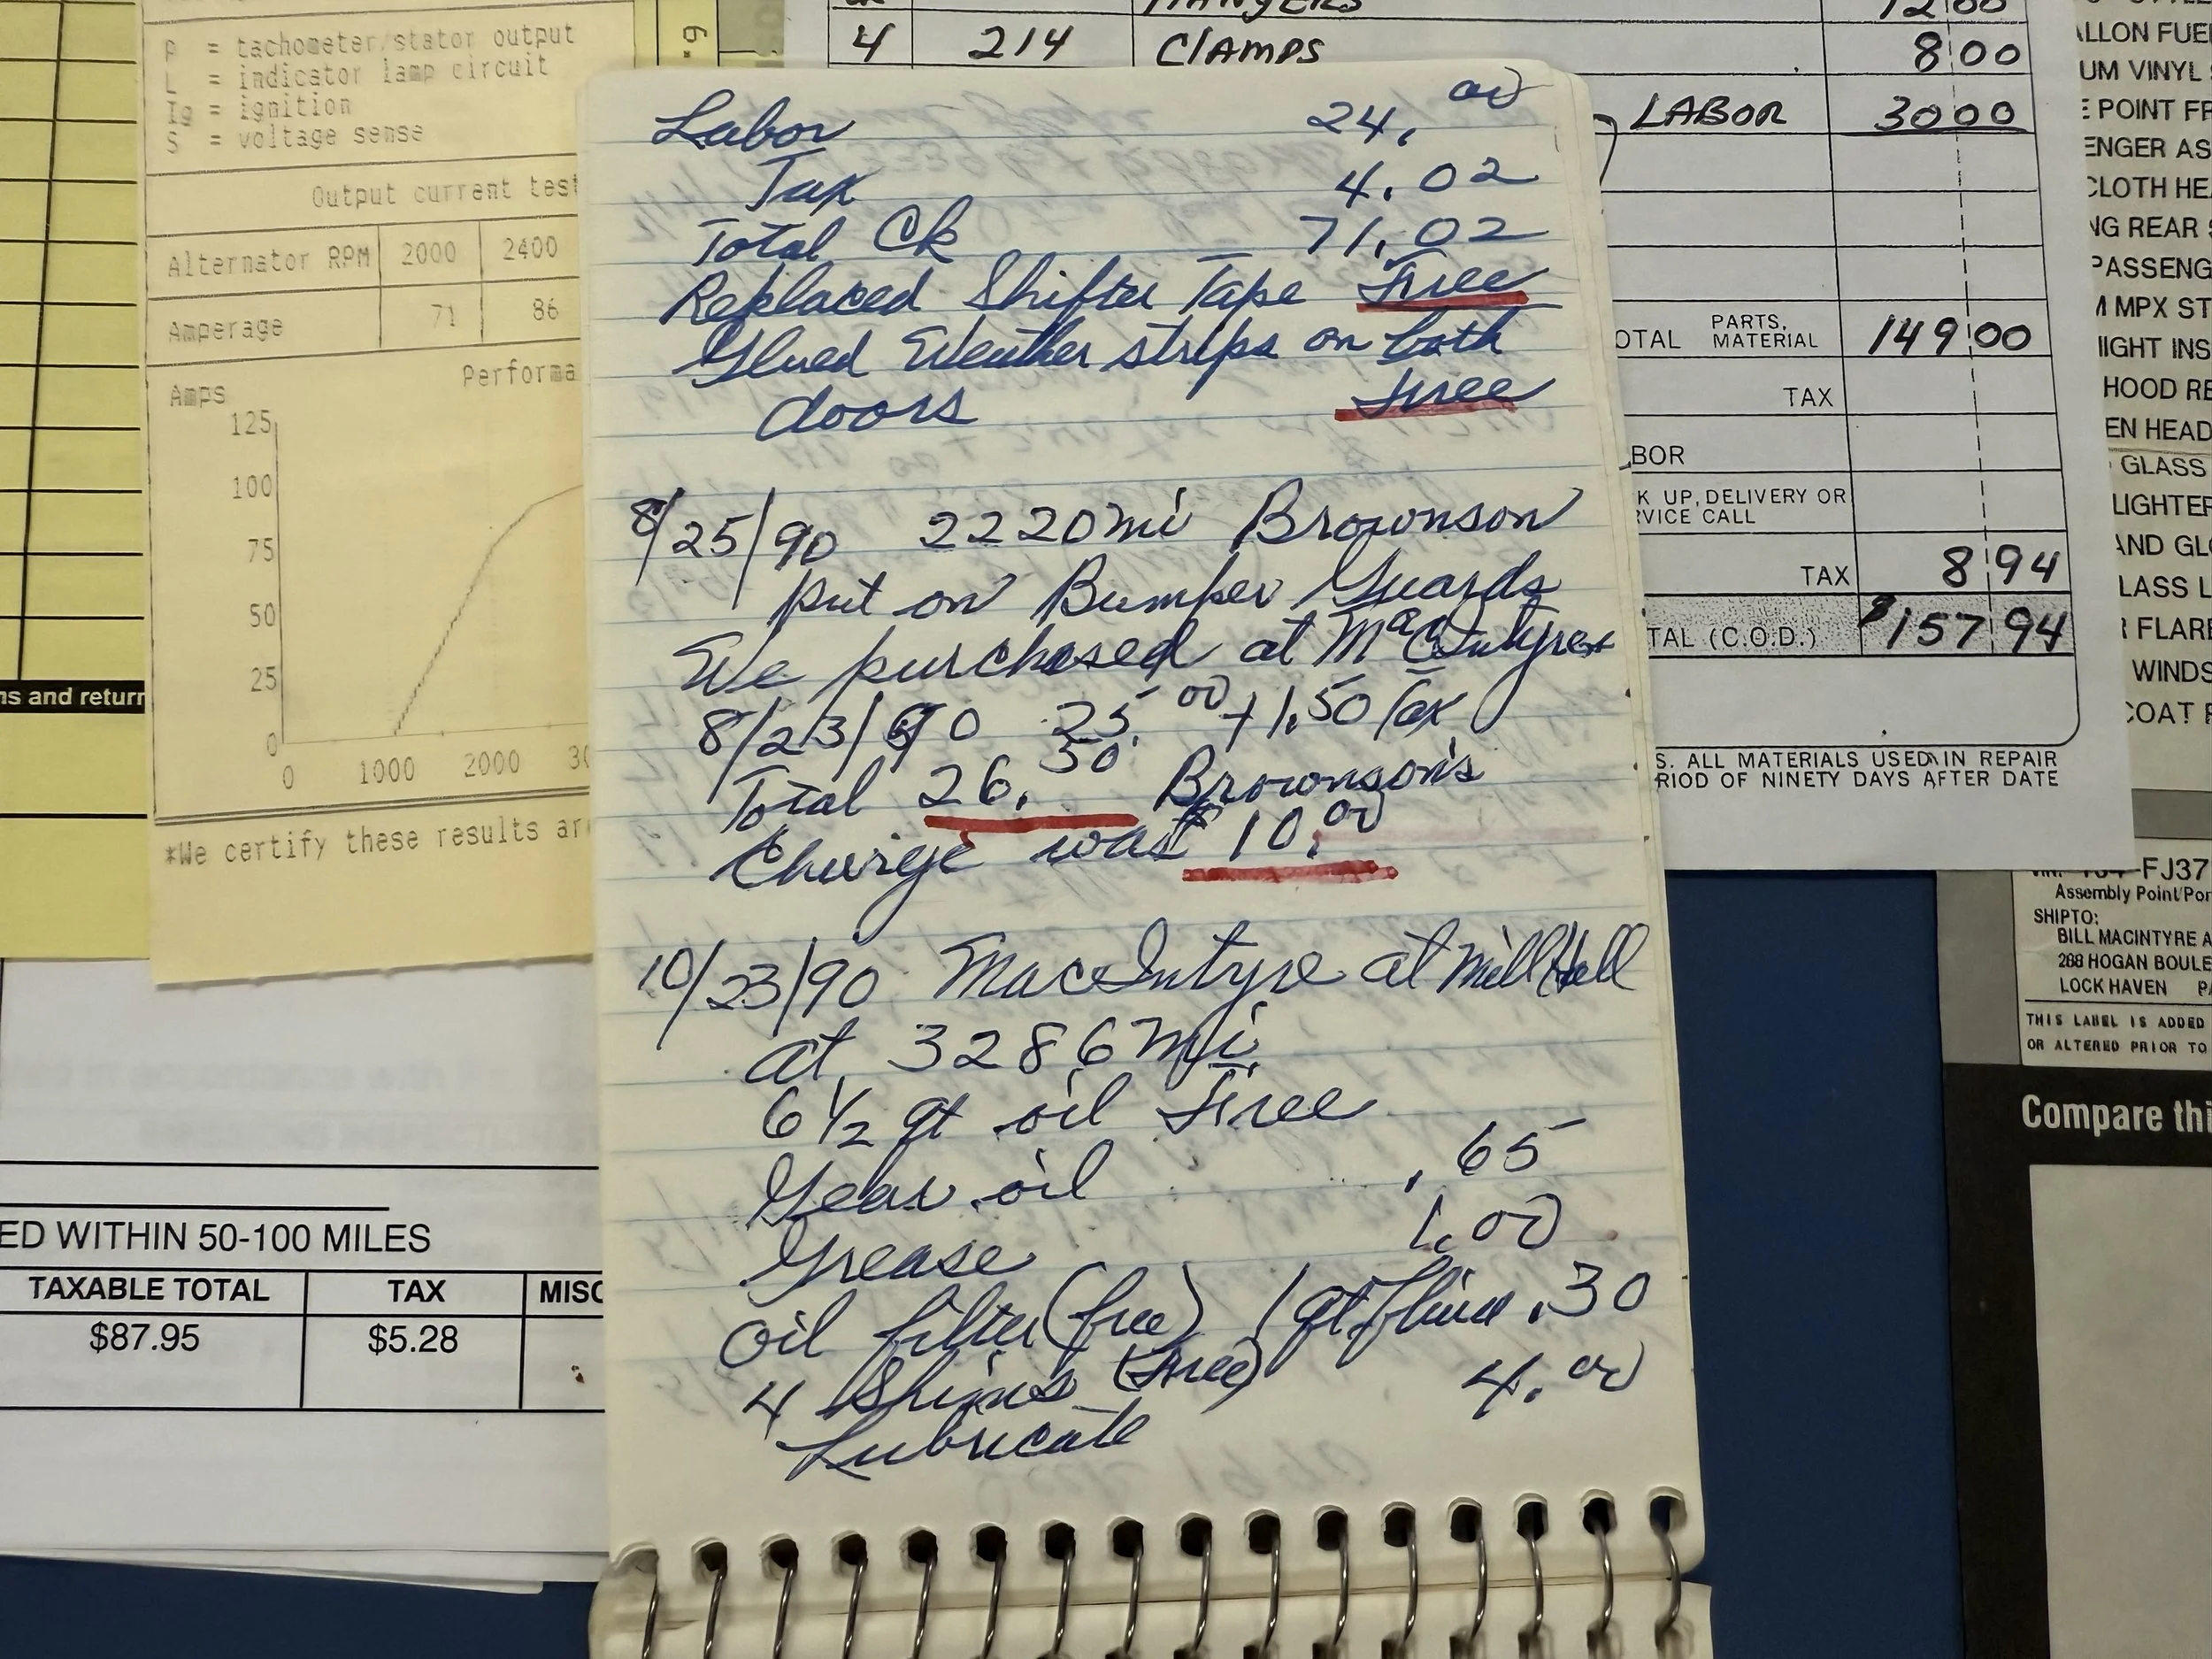 P = tachometer/stator output
L = indicator lamp circuit
Ig = ignition
S = voltage sense
Output current test
Alternator RPM 2000 2400
Amperage 71 86
Performa
Amps
125
100
75
50
25
0
0 1000 2000 30
*We certify these results ar
ns and return
ED WITHIN 50-100 MILES
TAXABLE TOTAL TAX MISC
$87.95 $5.28
Labor 24.00
Tax 4.02
Total Ck 71.02
Replaced Shifter Tape Free
Glued Weather strips on both
doors Free
8/25/90 2220 mi Brownson
put on Bumper Guards
We purchased at MacIntyre
8/23/90 25.00 + 1.50 Tax
Total 26.50 Brownson's
Charge was $10.00
10/23/90 MacIntyre at Mill Hall
at 3286 Mi.
6 1/2 qt oil Free
Gear oil .65
Grease 1.00
oil filter (free) 1 qt .30
4 Shims (Free) 4.00
Lubricate
HANGERS 12 00
4 214 ClAMPS 8 00
LABOR 30 00
OTAL PARTS, MATERIAL 149 00
TAX
BOR
K UP, DELIVERY OR
RVICE CALL
TAX 8 94
TAL (C.O.D.) $157 94
S. ALL MATERIALS USED IN REPAIR
RIOD OF NINETY DAYS AFTER DATE
ALLON FUE
UM VINYL
E POINT FR
ENGER AS
CLOTH HE
NG REAR
PASSENG
M MPX ST
IIGHT INS
HOOD RE
EN HEAD
GLASS
LIGHTER
AND GLO
LASS L
R FLARE
WINDS
COAT
-FJ37
Assembly Point/Por
SHIPTO:
BILL MACINTYRE A
288 HOGAN BOULE
LOCK HAVEN PA
THIS LABEL IS ADDED
OR ALTERED PRIOR TO
Compare thi